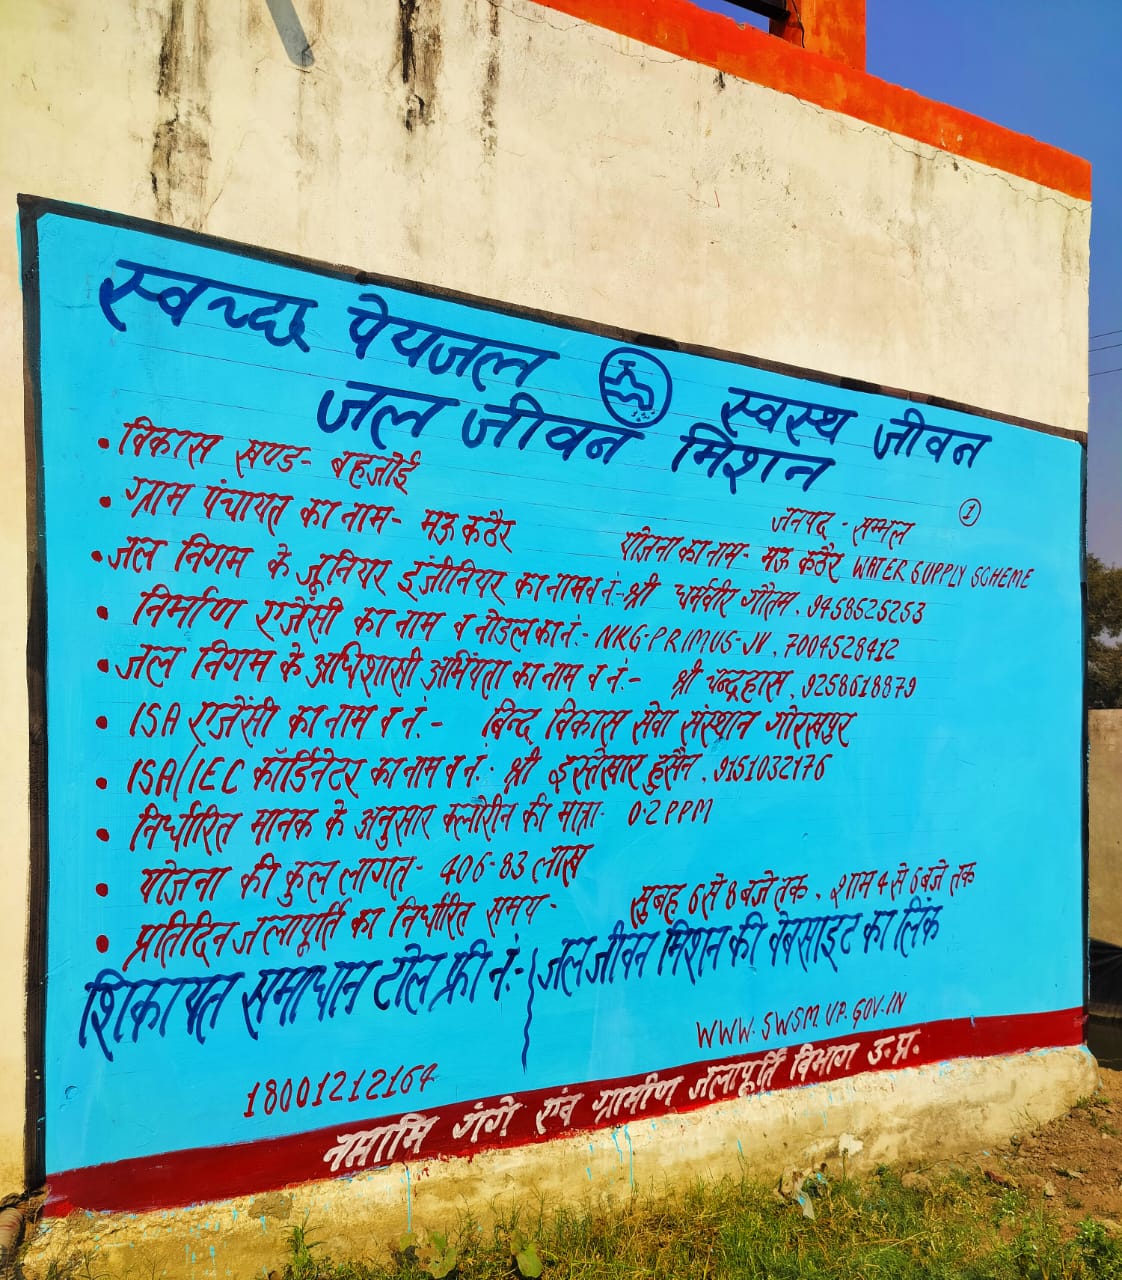 स्वच्छ पेयजल स्वस्थ जीवन
जल जीवन मिशन
1
• विकास खण्ड- बहजोई जनपद - सम्भल
• ग्राम पंचायत का नाम- मऊ कठैर योजना का नाम- मऊ कठैर WATER SUPPLY SCHEME
• जल निगम के जूनियर इंजीनियर का नाम व नं:- श्री धर्मवीर गौतम, 9458525253
• निर्माण एजेंसी का नाम व नोडल का नं:- NKG-PRIMUS-JV, 7004528412
• जल निगम के अधिशासी अभियंता का नाम व नं:- श्री चन्द्रहास, 9258618879
• ISA एजेंसी का नाम व नं:- बिन्द विकास सेवा संस्थान गोरखपुर
• ISA/IEC कॉर्डिनेटर का नाम व नं:- श्री इस्तेखार हुसैन, 9151032176
• निर्धारित मानक के अनुसार क्लोरीन की मात्रा- 0.2 PPM
• योजना की कुल लागत- 406-83 लाख
• प्रतिदिन जलापूर्ति का निर्धारित समय- सुबह 6 से 8 बजे तक, शाम 4 से 6 बजे तक
शिकायत समाधान टोल फ्री नं:- जल जीवन मिशन की वेबसाइट का लिंक
18001212164 WWW.SWSM.UP.GOV.IN
नमामि गंगे एंव ग्रामीण जलापूर्ति विभाग उ.प्र.